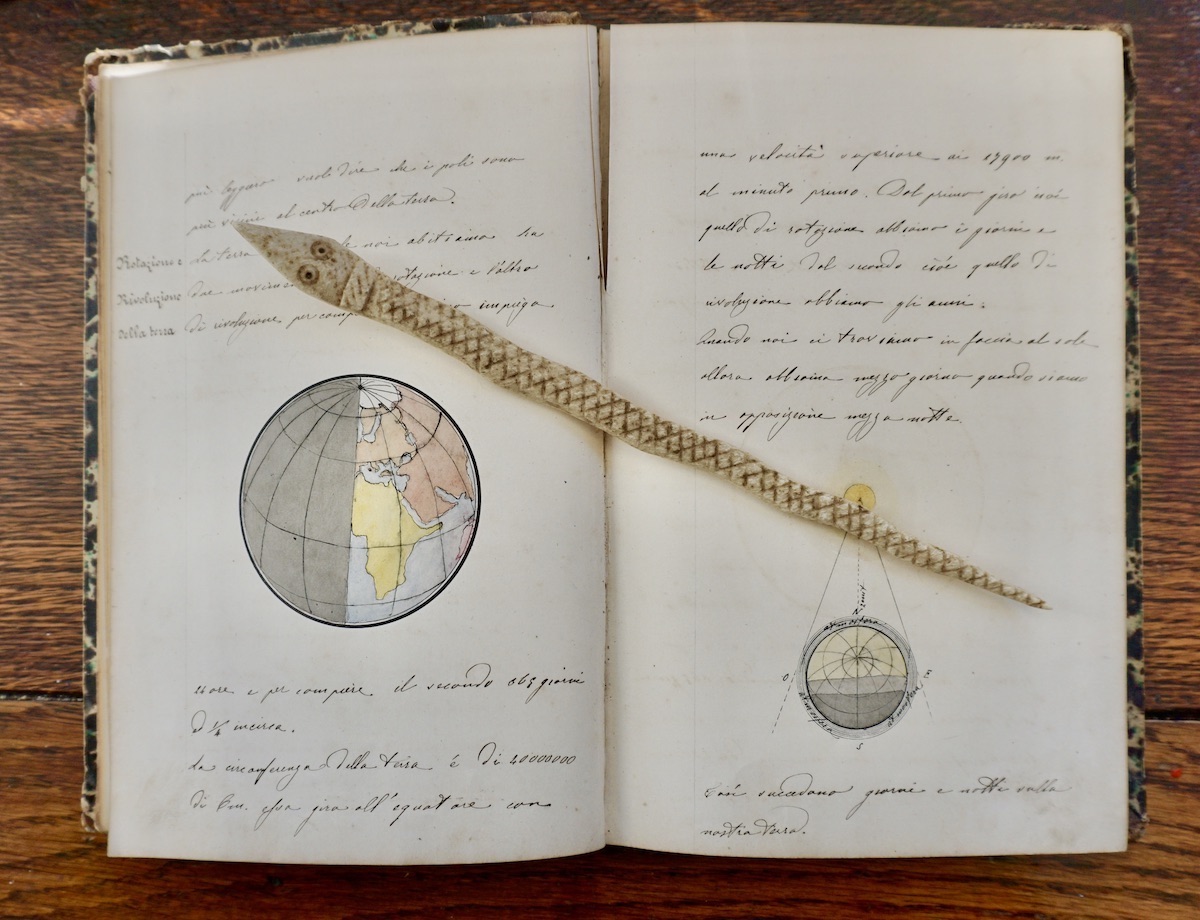 più leggero vuol dire che i poli sono
più vicini al centro della terra.
Rotazione e
Rivoluzione
della terra
La terra noi abitiamo ha
due movimen rotazione e l'altro
di rivoluzione per comp impiega
24 ore e per compiere il secondo 365 giorni
d 1/4 incirca.
La circonferenza della terra é di 40000000
di essa gira all'equatore con
una velocità superiore ai 27900 m.
al minuto primo. Dal primo giro cioé
quello di rotazione abbiamo i giorni e
le notti dal secondo cioé quello di
rivoluzione abbiamo gli anni.
Quando noi ci troviamo in faccia al sole
allora abbiamo mezzo giorno quando siamo
in opposizione mezza notte.
N
atmosfera
O
atmosfera
atmosfera
S
Così succedono giorni e notti sulla
nostra terra.